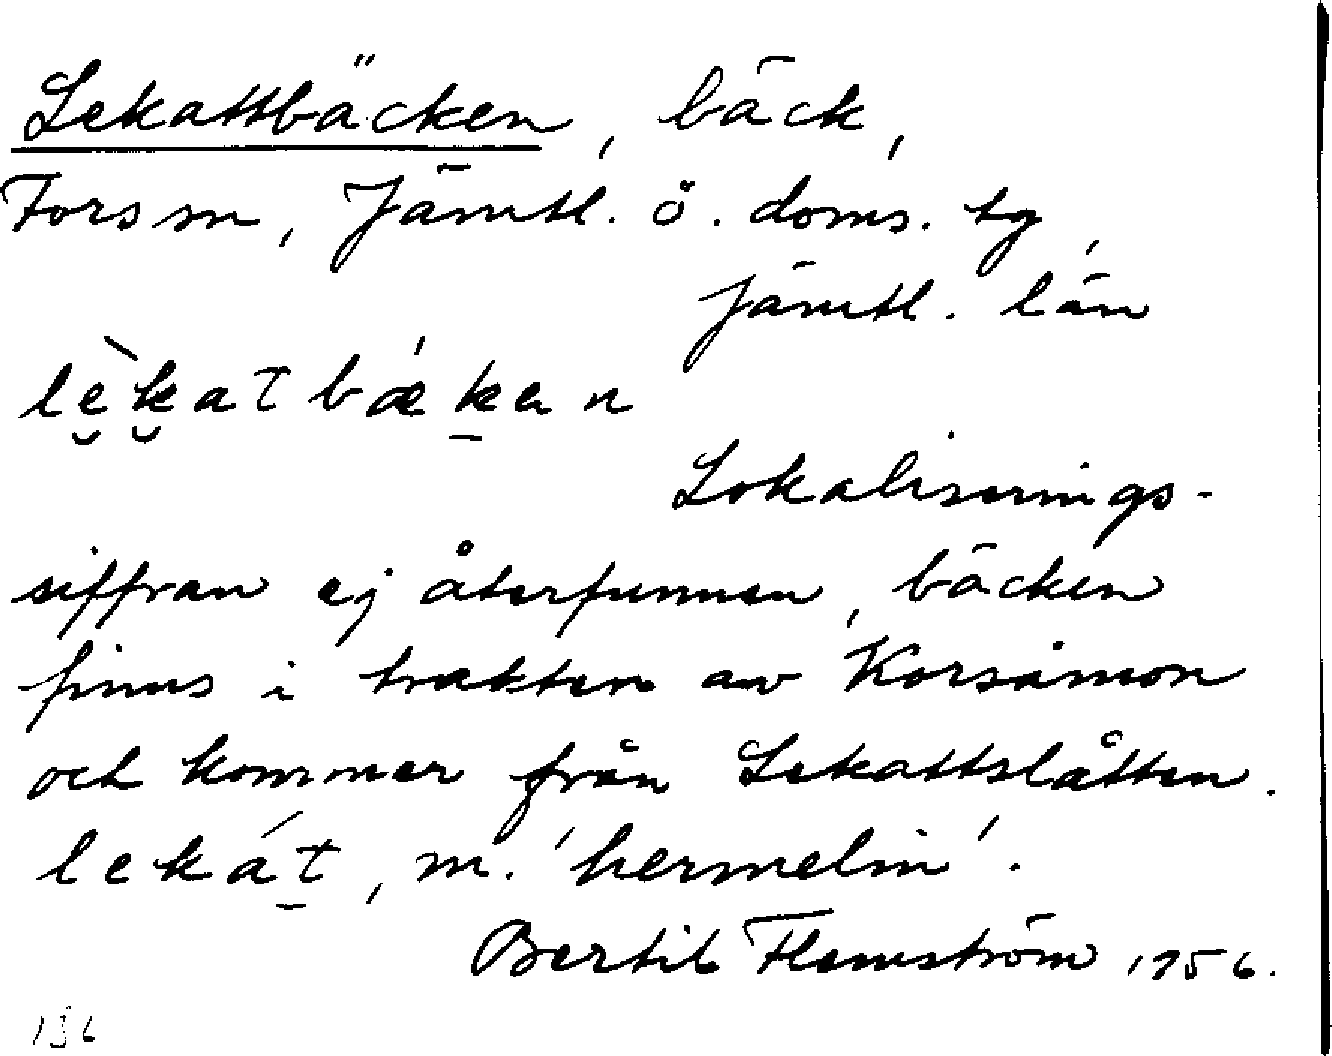 Lekattbäcken, bäck,
Forsm, Jämtl. ö. doms. tg,
Jämtl. län
lèkatbǽkan
Lokaliserings-
siffran ej återfunnen, bäcken
finns i trakten av Korsåmon
och kommer från Lekattslåtten.
lekát, m. 'hermelin'.
Bertil Flemström 1956.